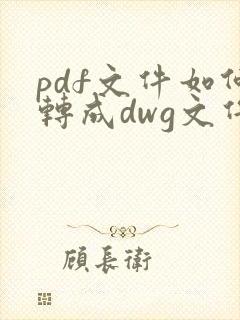 pdf文件如何
轉成dwg文件
顧長衛